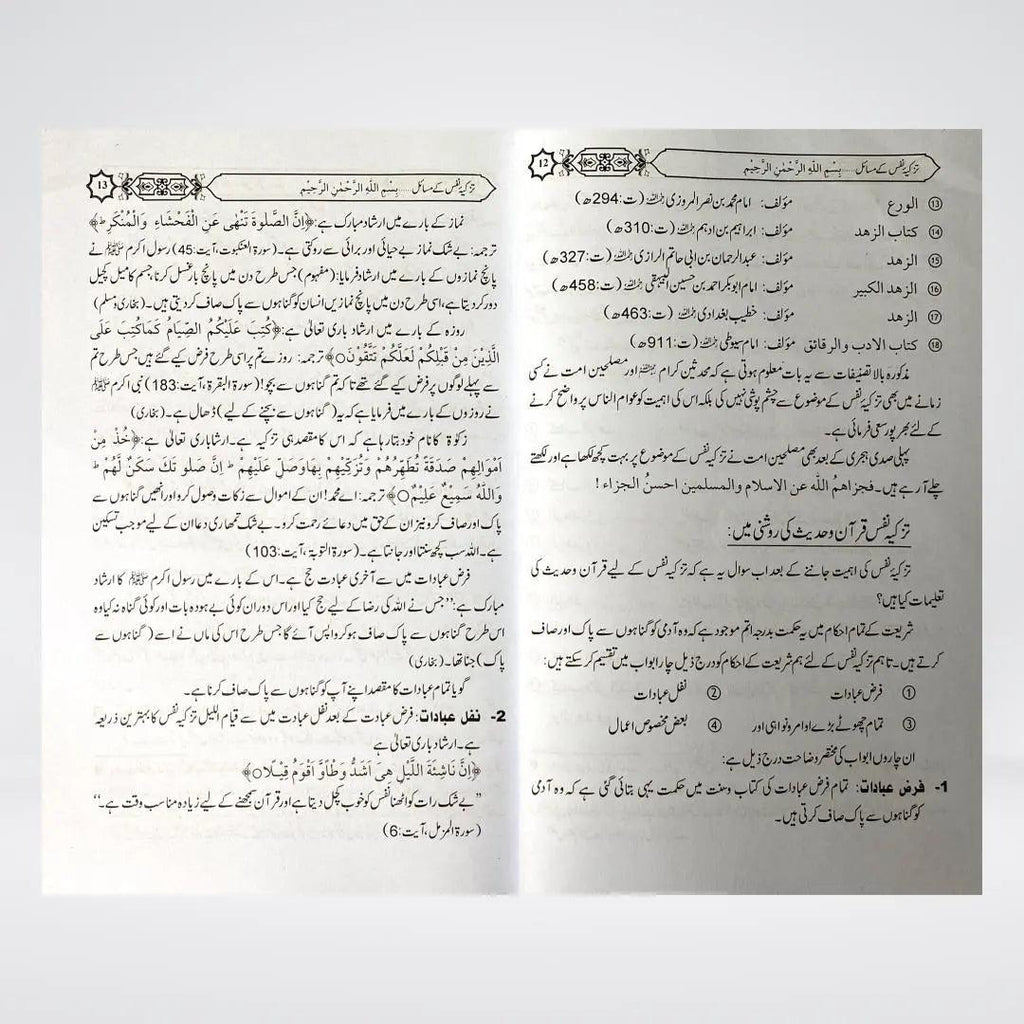 12 تزکیہ نفس کے مسائل ..... بِسْمِ اللهِ الرَّحْمٰنِ الرَّحِيْمِ
⑬ الورع مؤلف: امام محمد بن نصر المروزی رحمہ اللہ (ت:294ھ)
⑭ کتاب الزھد مؤلف: ابراہیم بن ادہم رحمہ اللہ (ت:310ھ)
⑮ الزھد مؤلف: عبدالرحمان بن ابی حاتم الرازی رحمہ اللہ (ت:327ھ)
⑯ الزھد الکبیر مؤلف: امام ابوبکر احمد بن حسین البیہقی رحمہ اللہ (ت:458ھ)
⑰ الزھد مؤلف: خطیب بغدادی رحمہ اللہ (ت:463ھ)
⑱ کتاب الادب والرقائق مؤلف: امام سیوطی رحمہ اللہ (ت:911ھ)
مذکورہ بالا تصنیفات سے یہ بات معلوم ہوتی ہے کہ محدثین کرام اور مصلحین امت نے کسی
زمانے میں بھی تزکیہ نفس کے موضوع سے چشم پوشی نہیں کی بلکہ اس کی اہمیت کو عوام الناس پر واضح کرنے
کے لئے بھر پور سعی فرمائی ہے۔
پہلی صدی ہجری کے بعد بھی مصلحین امت نے تزکیہ نفس کے موضوع پر بہت کچھ لکھا ہے اور لکھتے
چلے آ رہے ہیں۔ فجزاهم الله عن الاسلام والمسلمین احسنُ الجزاء !
تزکیہ نفس قرآن وحدیث کی روشنی میں:
تزکیہ نفس کی اہمیت جاننے کے بعد اب سوال یہ ہے کہ تزکیہ نفس کے لیے قرآن وحدیث کی
تعلیمات کیا ہیں؟
شریعت کے تمام احکام میں یہ حکمت بدرجہ اتم موجود ہے کہ وہ آدمی کو گناہوں سے پاک اور صاف
کرتے ہیں۔ تاہم تزکیہ نفس کے لئے ہم شریعت کے احکام کو درج ذیل چار ابواب میں تقسیم کر سکتے ہیں:
① فرض عبادات ② نفل عبادات
③ تمام چھوٹے بڑے اوامر ونواہی اور ④ بعض مخصوص اعمال
ان چاروں ابواب کی مختصر وضاحت درج ذیل ہے:
1- فرض عبادات: تمام فرض عبادات کی کتاب وسنت میں حکمت یہی بتائی گئی ہے کہ وہ آدمی
کو گناہوں سے پاک صاف کرتی ہیں۔
13 تزکیہ نفس کے مسائل ..... بِسْمِ اللهِ الرَّحْمٰنِ الرَّحِيْمِ
نماز کے بارے میں ارشاد مبارک ہے: ﴿اِنَّ الصَّلٰوةَ تَنْهٰى عَنِ الْفَحْشَاءِ وَالْمُنْكَرِ ط﴾
ترجمہ: بے شک نماز بے حیائی اور برائی سے روکتی ہے۔ (سورۃ العنکبوت، آیت:45) رسول اکرم ﷺ نے
پانچ نمازوں کے بارے میں ارشاد فرمایا: (مفہوم) جس طرح دن میں پانچ بار غسل کرنا، جسم کا میل کچیل
دور کر دیتا ہے، اسی طرح دن میں پانچ نمازیں انسان کو گناہوں سے پاک صاف کر دیتی ہیں۔ (بخاری ومسلم)
روزہ کے بارے میں ارشاد باری تعالیٰ ہے: ﴿كُتِبَ عَلَيْكُمُ الصِّيَامُ كَمَا كُتِبَ عَلَى
الَّذِيْنَ مِنْ قَبْلِكُمْ لَعَلَّكُمْ تَتَّقُوْنَ○﴾ ترجمہ: روزے تم پر اسی طرح فرض کیے گئے ہیں جس طرح تم
سے پہلے لوگوں پر فرض کیے گئے تھے تا کہ تم گناہوں سے بچو! (سورۃ البقرۃ، آیت:183) نبی اکرم ﷺ
نے روزوں کے بارے میں فرمایا ہے کہ یہ (گناہوں سے بچنے کے لیے) ڈھال ہے۔ (بخاری)
زکوٰۃ کا نام خود بتا رہا ہے کہ اس کا مقصد ہی تزکیہ ہے۔ ارشاباری تعالیٰ ہے: ﴿خُذْ مِنْ
اَمْوَالِهِمْ صَدَقَةً تُطَهِّرُهُمْ وَتُزَكِّيْهِمْ بِهَا وَصَلِّ عَلَيْهِمْ ط اِنَّ صَلٰوتَكَ سَكَنٌ لَّهُمْ ط
وَاللّٰهُ سَمِيْعٌ عَلِيْمٌ○﴾ ترجمہ: اے محمد! ان کے اموال سے زکات وصول کرو اور انھیں گناہوں سے
پاک اور صاف کرو نیز ان کے حق میں دعائے رحمت کرو۔ بے شک تمھاری دعا ان کے لیے موجب تسکین
ہے۔ اللہ سب کچھ سنتا اور جانتا ہے۔ (سورۃ التوبۃ، آیت:103)
فرض عبادات میں سے آخری عبادت حج ہے۔ اس کے بارے میں رسول اکرم ﷺ کا ارشاد
مبارک ہے: ”جس نے اللہ کی رضا کے لیے حج کیا اور اس دوران کوئی بے ہودہ بات اور کوئی گناہ نہ کیا وہ
اس طرح گناہوں سے پاک صاف ہو کر واپس آئے گا جس طرح اس کی ماں نے اسے (گناہوں سے
پاک) جنا تھا۔ (بخاری)
گویا تمام عبادات کا مقصد اپنے آپ کو گناہوں سے پاک صاف کرنا ہے۔
2- نفل عبادات: فرض عبادت کے بعد نفل عبادت میں سے قیام اللیل تزکیہ نفس کا بہترین ذریعہ
ہے۔ ارشاد باری تعالیٰ ہے
﴿اِنَّ نَاشِئَةَ اللَّيْلِ هِيَ اَشَدُّ وَطْاً وَّ اَقْوَمُ قِيْلًا○﴾
”بے شک رات کو اٹھنا نفس کو خوب کچل دیتا ہے اور قرآن سمجھنے کے لیے زیادہ مناسب وقت ہے۔“
(سورۃ المزمل، آیت:6)